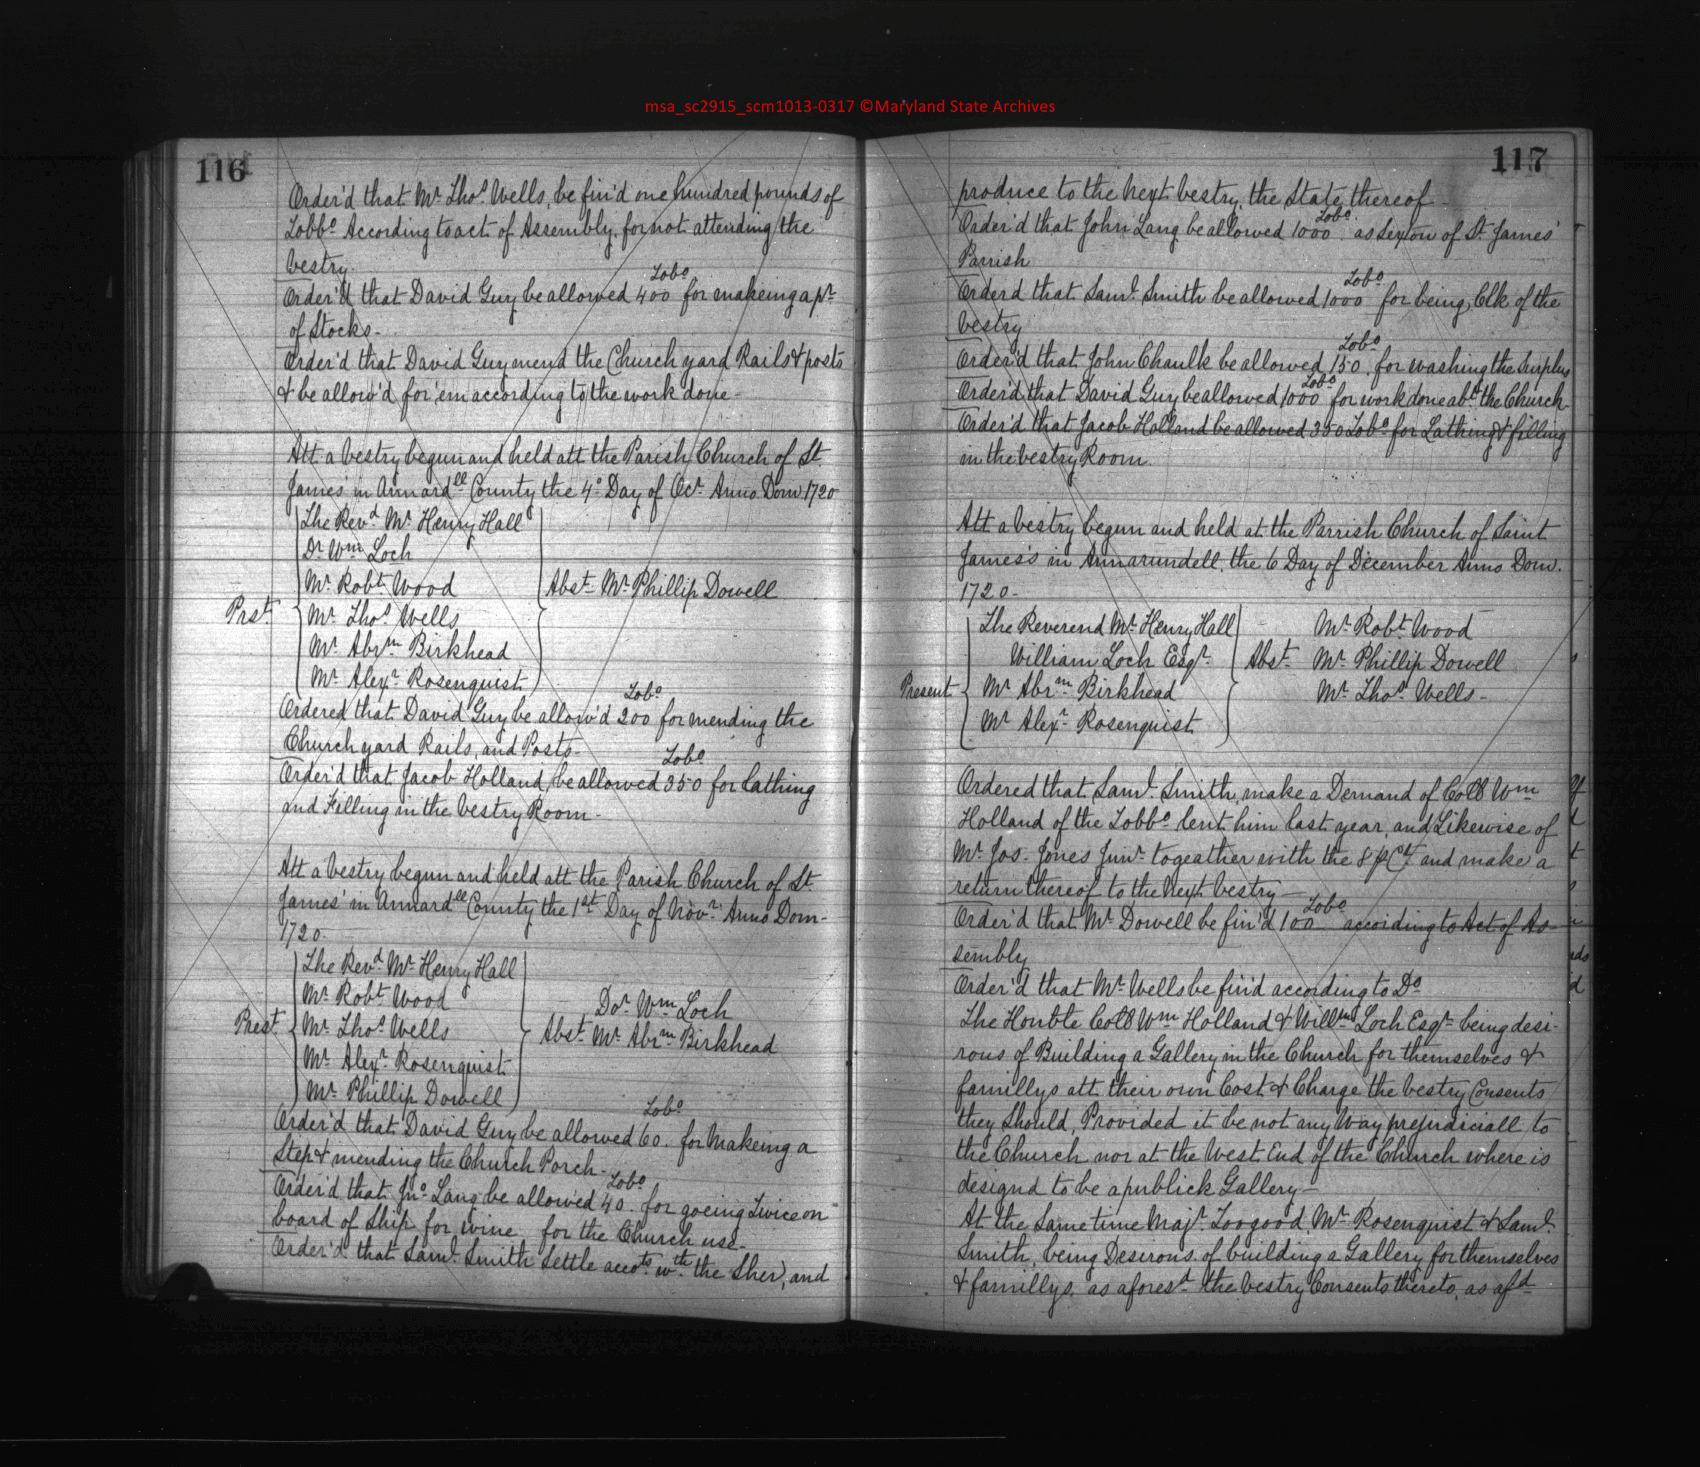 msa_sc2915_scm1013-0317 ©Maryland State Archives
116
Order'd that Mr. Thos. Wells, be fin'd one hundred pounds of
Tobbo. According to act of Assembly, for not attending the
Vestry.
Order'd that David Guy be allowed 400 Tobo. for makeing a pr.
of Stocks-
Order'd that David Guy mend the Church yard Rails & posts
& be allow'd for 'em according to the work done-
Att a Vestry begun and held att the Parish Church of St.
James' in Annardll County the 4o Day of Octr. Anno Dom 1720
The Revd. Mr. Henry Hall
Dr. Wm. Loch
Mr. Robt. Wood Abst. Mr. Phillip Dowell
Prst. Mr. Thos. Wells
Mr. Abrm. Birkhead
Mr. Alexr. Rosenquist
Ordered that David Guy be allow'd 200 Tobo. for mending the
Church yard Rails, and Posts-
Order'd that Jacob Holland, be allowed 350 Tobo. for Lathing
and Filling in the Vestry Room-
Att a Vestry begun and held att the Parish Church of St.
James' in Annardll County the 1st Day of Novr. Anno Dom-
1720-
The Revd. Mr. Henry Hall
Mr. Robt. Wood Dor. Wm. Loch
Prest. Mr. Thos. Wells Abst. Mr. Abrm. Birkhead
Mr. Alexr. Rosenquist
Mr. Phillip Dowell
Order'd that David Guy be allowed 60 Tobo. for Makeing a
Step & mending the Church Porch-
Order'd that Jno. Lang be allowed 40 Tobo. for goeing Twice on
board of Ship for wine for the Church use-
Order'd that Saml. Smith Settle accots. wth. the Sher, and
117
produce to the Next Vestry, the State thereof
Order'd that John Lang be allowed 1000 Tobo. as Sexton of St. James'
Parrish
Order'd that Saml. Smith be allowed 1000 Tobo. for being Clk of the
Vestry
Order'd that John Chaulk be allowed 150 Tobo. for washing the Surplus
Order'd that David Guy be allowed 1000 Tobo. for work done abt. the Church
Order'd that Jacob Holland be allowed 350 Tobo. for Lathing & filling
in the Vestry Room.
Att a Vestry begun and held at the Parrish Church of Saint
James's in Annarundell, the 6 Day of December Anno Dom.
1720-
The Reverend Mr. Henry Hall Mr. Robt. Wood
William Loch Esqr. Abst. Mr. Phillip Dowell
Present Mr. Abrm. Birkhead Mr. Thos. Wells-
Mr. Alexr. Rosenquist
Ordered that Saml. Smith, make a Demand of Collo Wm
Holland of the Tobbo. lent him last year, and Likewise of
Mr. Jos. Jones Junr. togeather with the 8 p Ct. and make a
return thereof to the Next Vestry-
Order'd that Mr. Dowell be fin'd 100 Tobo. according to Act of As-
sembly
Order'd that Mr. Wells be fin'd according to Do
The Honble Collo Wm Holland & Willm Loch Esqr. being desi-
rous of Building a Gallery in the Church for themselves &
famillys att their own Cost & Charge the Vestry Consents
they Should, Provided it be not any Way prejudiciall to
the Church nor at the West End of the Church where is
designd to be a publick Gallery-
At the Same time Majr. Toogood, Mr. Rosenquist & Saml.
Smith, being Desirous of building a Gallery for themselves
& famillys, as aforesd. the Vestry Consents thereto, as afd.